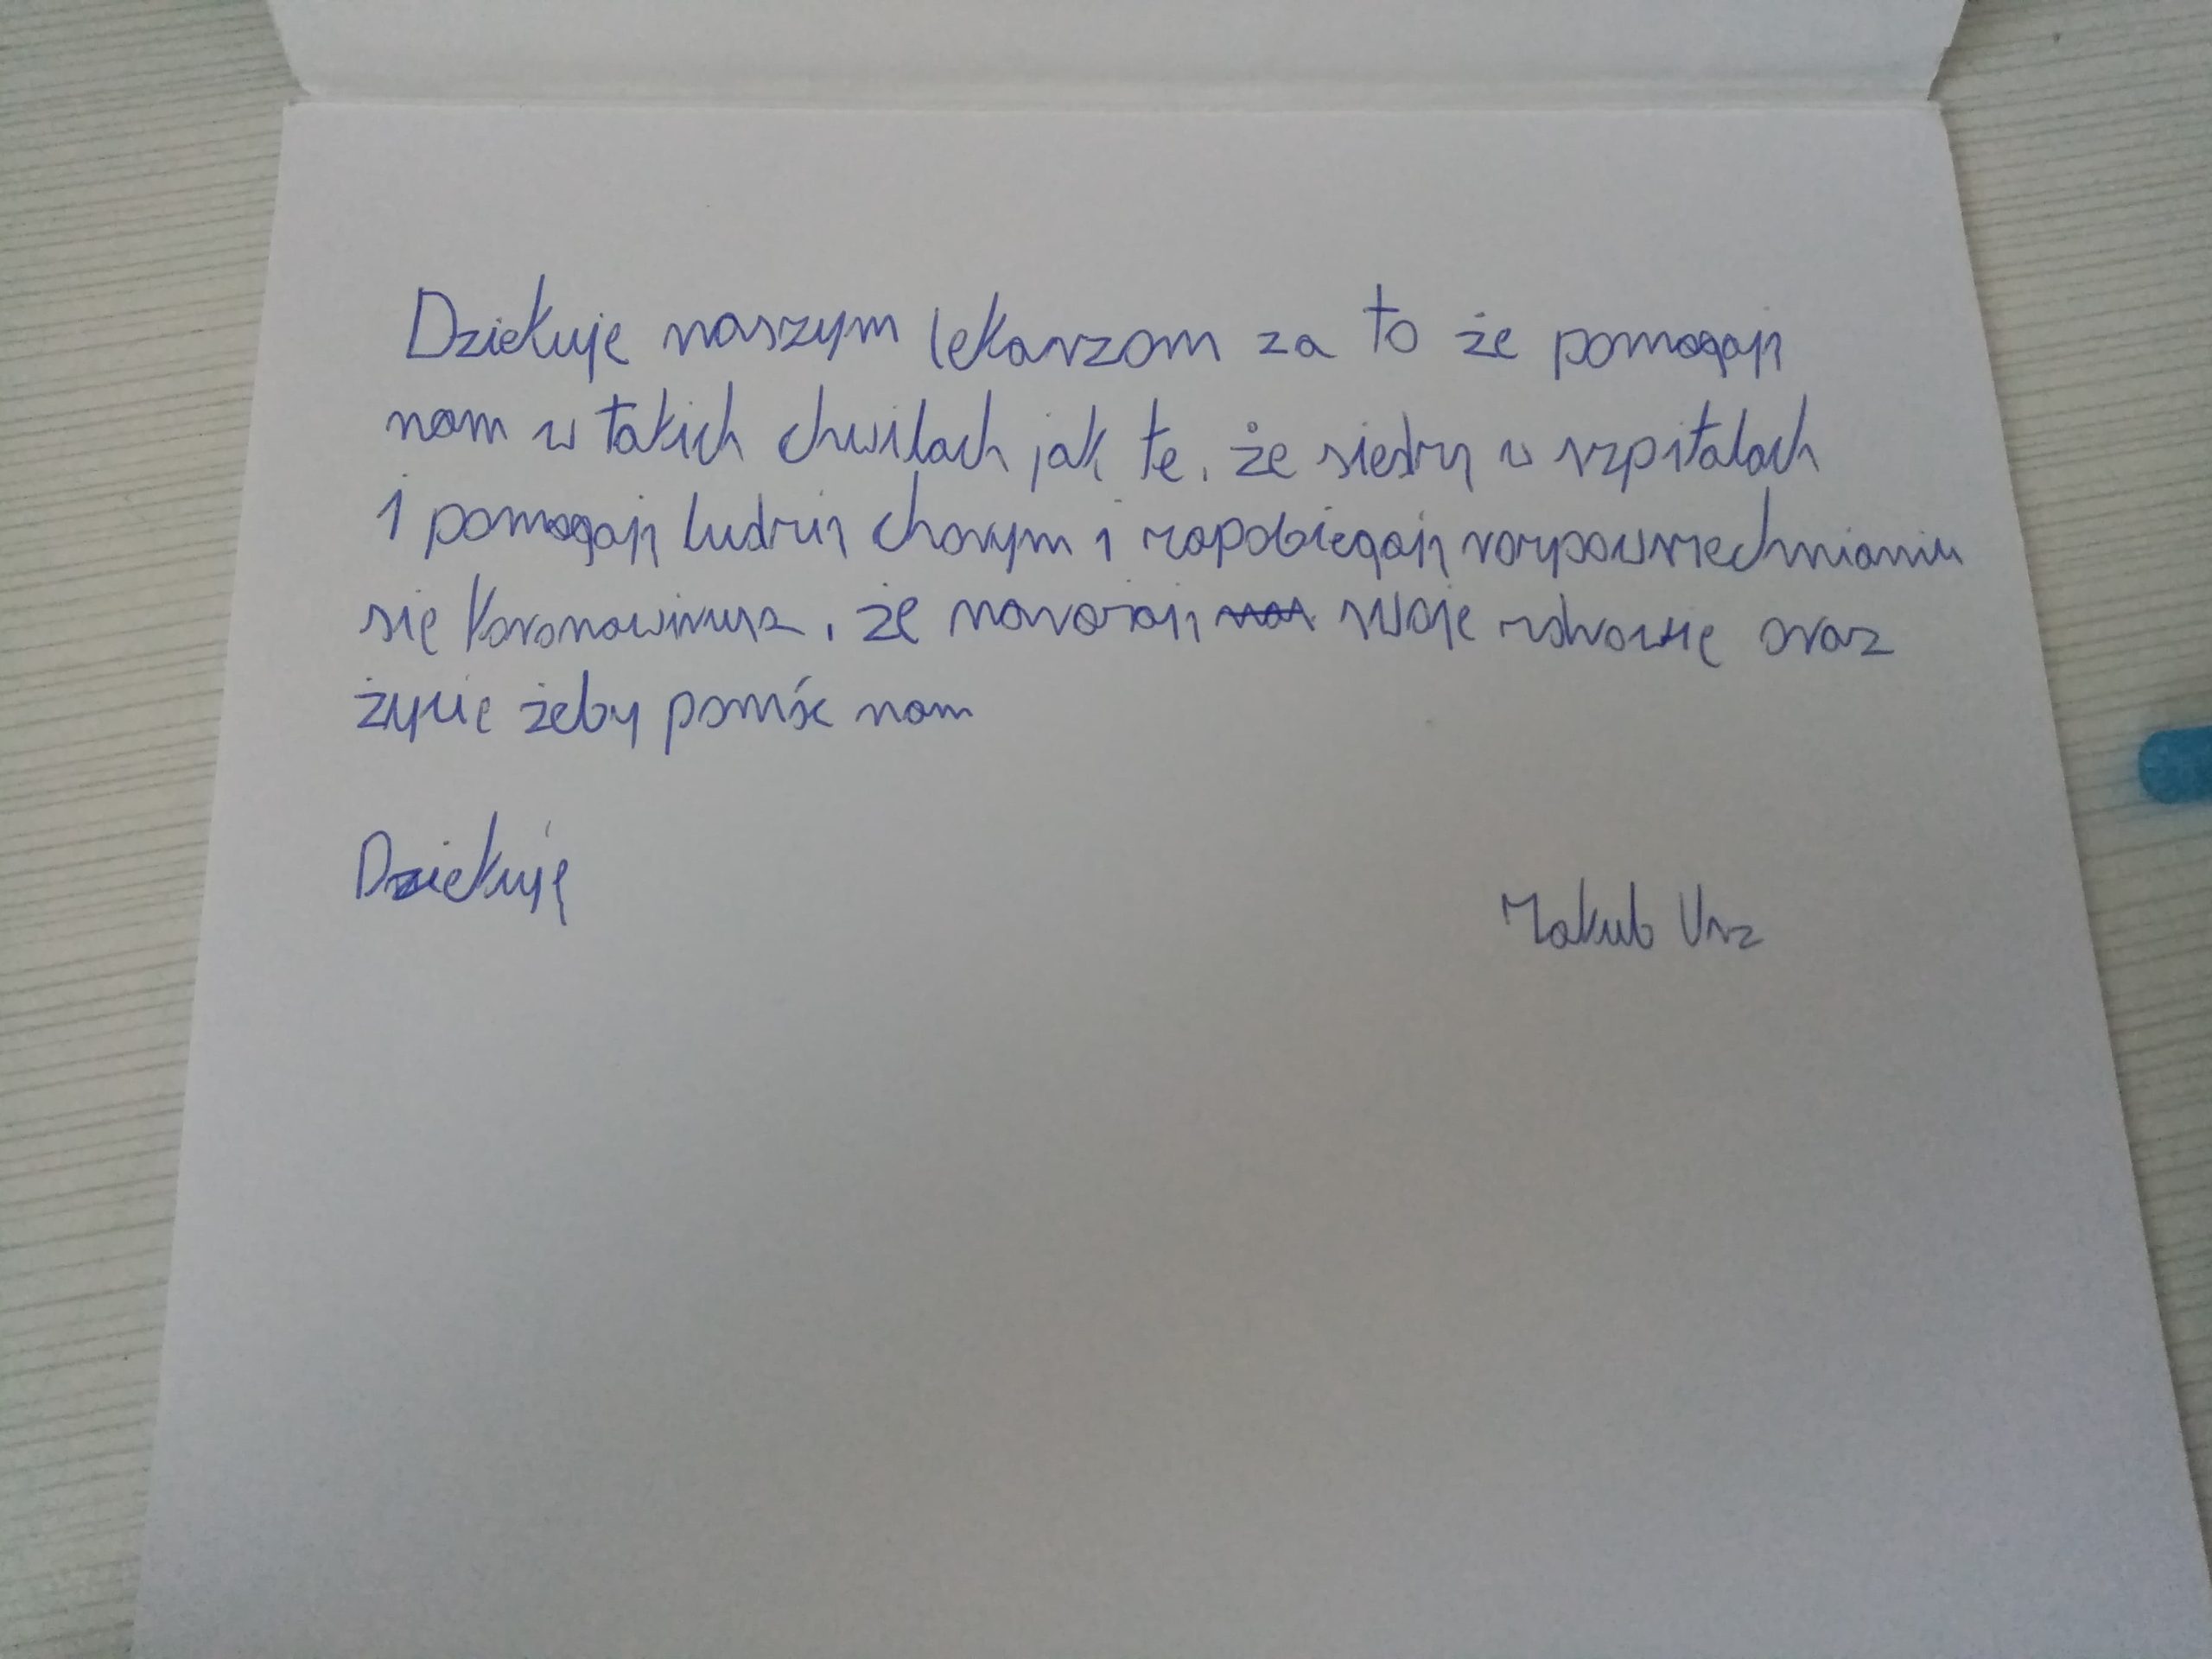 Dziekuje naszym lekarzom za to że pomogają
nam w takich chwilach jak te, że siedzą w szpitalach
i pomogają ludzią chorym i zapobiegają rozpowrzechnianiu
się koronawirusa, że narażają swoje zdrowie oraz
życie żeby pomóc nam
Dziekuję
Jakub